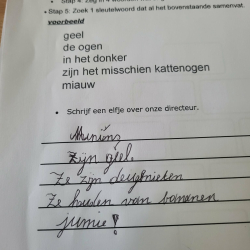 • Stap 5: Zoek 1 sleutelwoord dat al het bovenstaande samenvat.
voorbeeld
geel
de ogen
in het donker
zijn het misschien kattenogen
miauw
• Schrijf een elfje over onze directeur.
Minions
Zijn geel.
Ze zijn deugnieten
Ze houden van bananen
jumie!